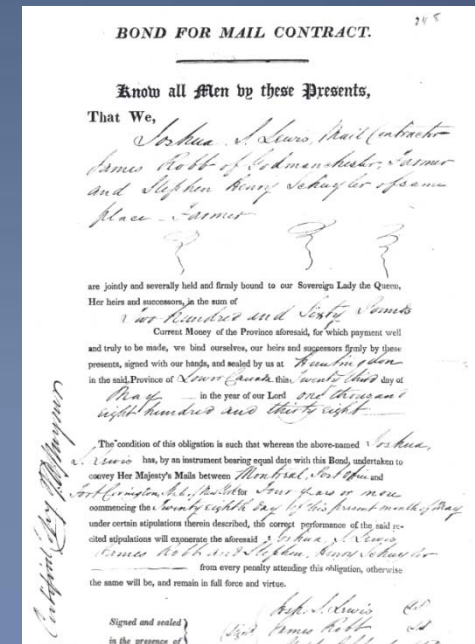 BOND FOR MAIL CONTRACT.
Know all Men by these Presents,
That We,
Joshua S. Lewis, Mail Contractor
James Robb of Godmanchester, Farmer
and Stephen Henry Schuyler of same
place - Farmer
are jointly and severally held and firmly bound to our Sovereign Lady the Queen,
Her heirs and successors, in the sum of
Two hundred and Sixty Pounds
Current Money of the Province aforesaid, for which payment well
and truly to be made, we bind ourselves, our heirs and successors firmly by these
presents, signed with our hands, and sealed by us at Huntingdon
in the said Province of Lower Canada this twenty third day of
May in the year of our Lord one thousand
eight hundred and thirty eight
The condition of this obligation is such that whereas the above-named Joshua
S. Lewis has, by an instrument bearing equal date with this Bond, undertaken to
convey Her Majesty's Mails between Montreal, and
Fort Covington for four years or more
commencing the twenty eighth day of this present month of May
under certain stipulations therein described, the correct performance of the said re-
cited stipulations will exonerate the aforesaid Joshua S. Lewis,
James Robb and Stephen Henry Schuyler
from every penalty attending this obligation, otherwise
the same will be, and remain in full force and virtue.
Josh. S. Lewis
Signed and sealed
James Robb
in the presence of